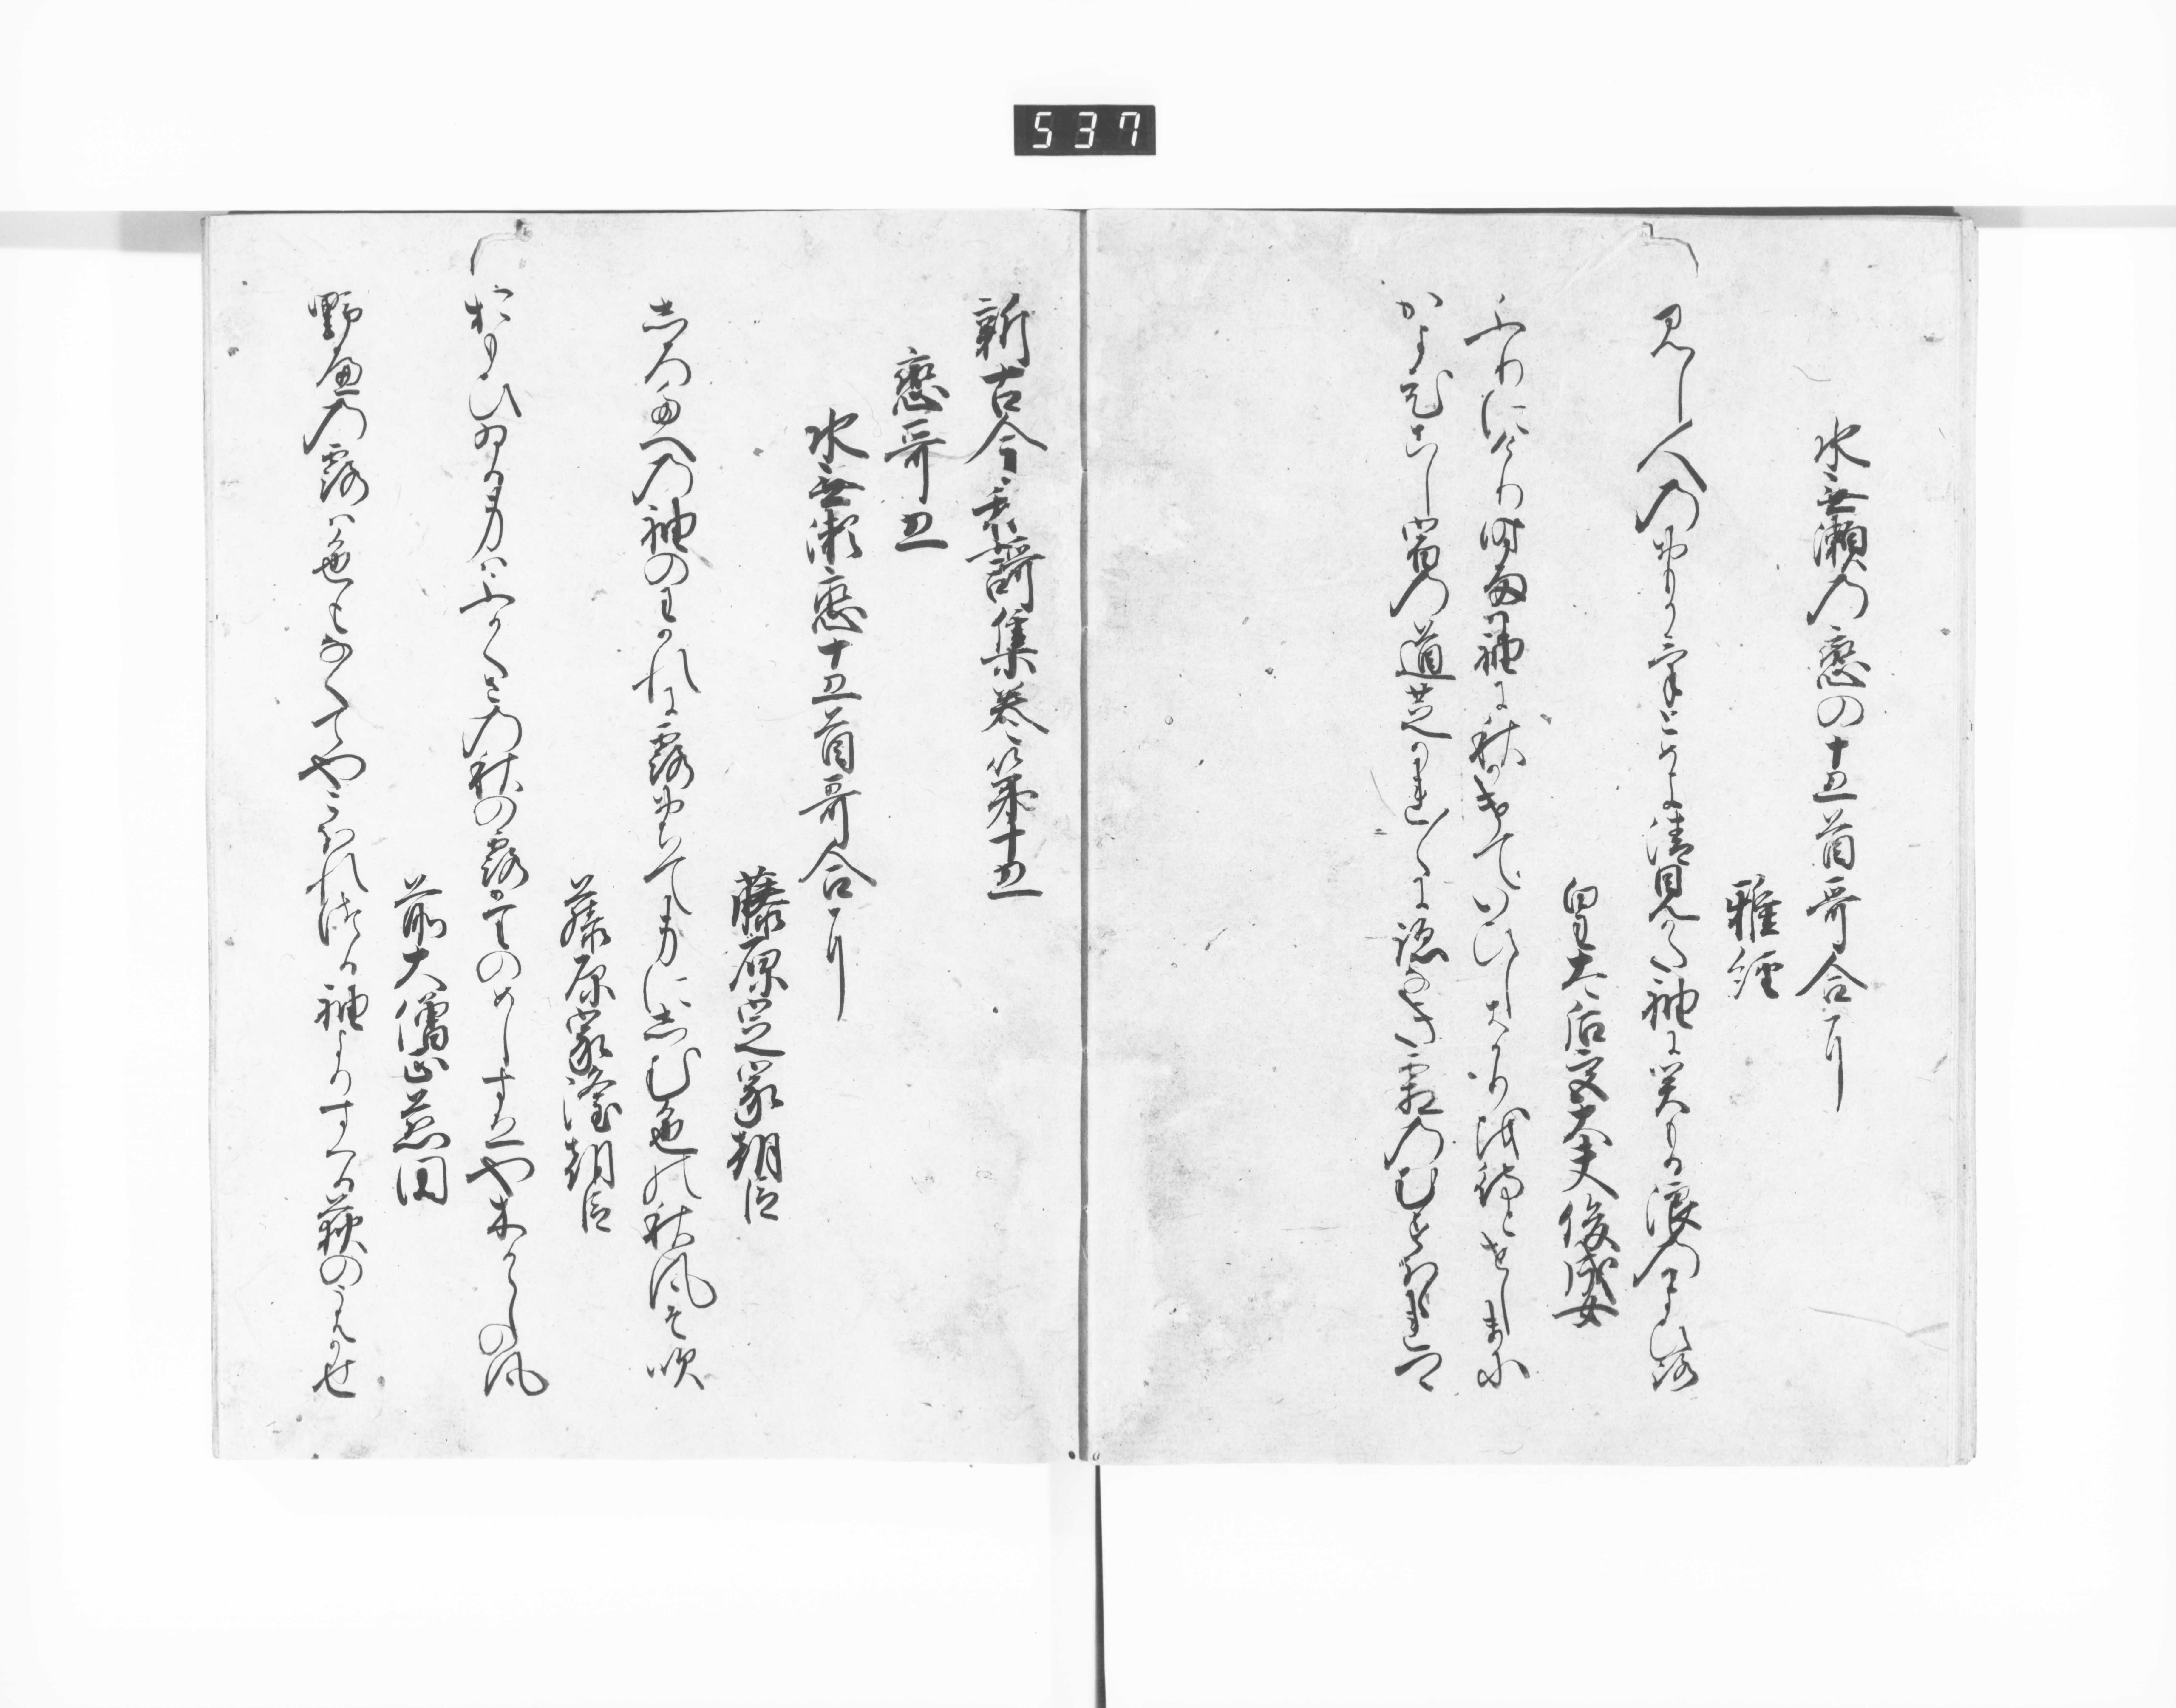 537
水無瀬乃戀の十五首哥合に
雅經
見し人乃おもかけとめよ清見かた袖にせきもる浪乃かよひ路
皇太后宮大夫俊成女
ふりにけり時雨は袖に秋かけていひしはかりを待とせしまに
かよひこし宿乃道芝かれ〱に跡なき霜乃むすほゝれつゝ
新古今和謌集巻第十五
戀哥五
水無瀬戀十五首哥合に
藤原定家朝臣
しろたへ乃袖のわかれに露おちて身にしむ色の秋風そ吹
藤原家隆朝臣
おもひいる身はふかくさ乃秋の露たのめしすゑや木からしの風
前大僧正慈円
野邊乃露は色もなくてやこほれつる袖よりすくる荻のうはかせ